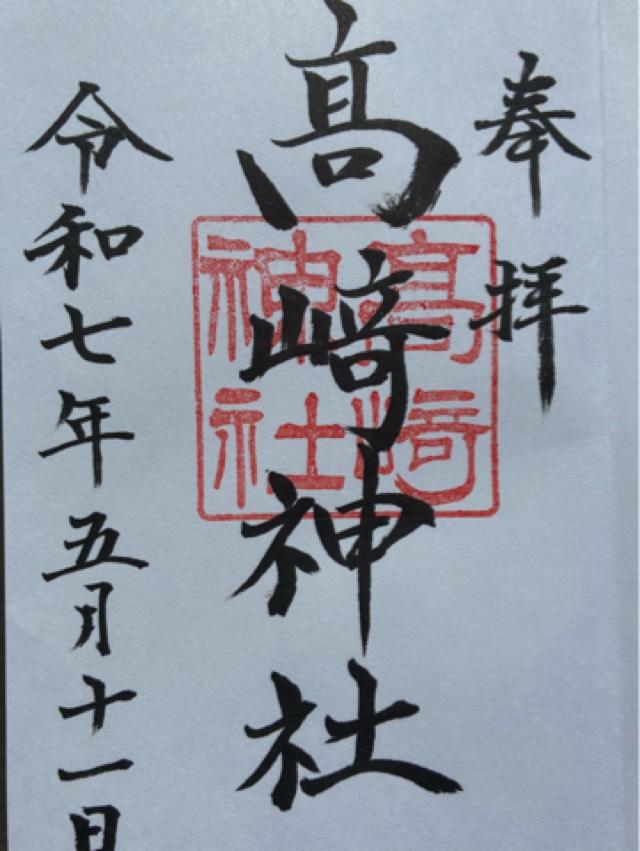 奉拝
髙﨑神社
髙﨑
神社
令和七年五月十一日